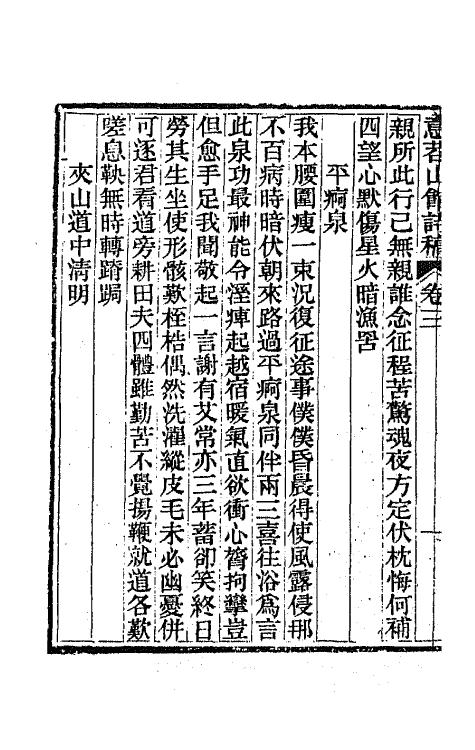 意苕山館詩稿 卷三 一
親所此行已無親誰念征程苦驚魂夜方定伏枕悔何補
四望心默傷星火暗漁罟
平痾泉
我本腰圍瘦一束況復征途事僕僕昏晨得使風露侵那
不百病時暗伏朝來路過平痾泉同伴兩三喜往浴爲言
此泉功最神能令溼痺起越宿暖氣直欲衝心膂拘攣豈
但愈手足我聞敬起一言謝有艾常亦三年蓄卻笑終日
勞其生坐使形骸歎桎梏偶然洗濯縱皮毛未必幽憂併
可逐君看道旁耕田夫四體雖勤苦不覺揚鞭就道各歎
嗟息鞅無時轉蹐跼
夾山道中清明